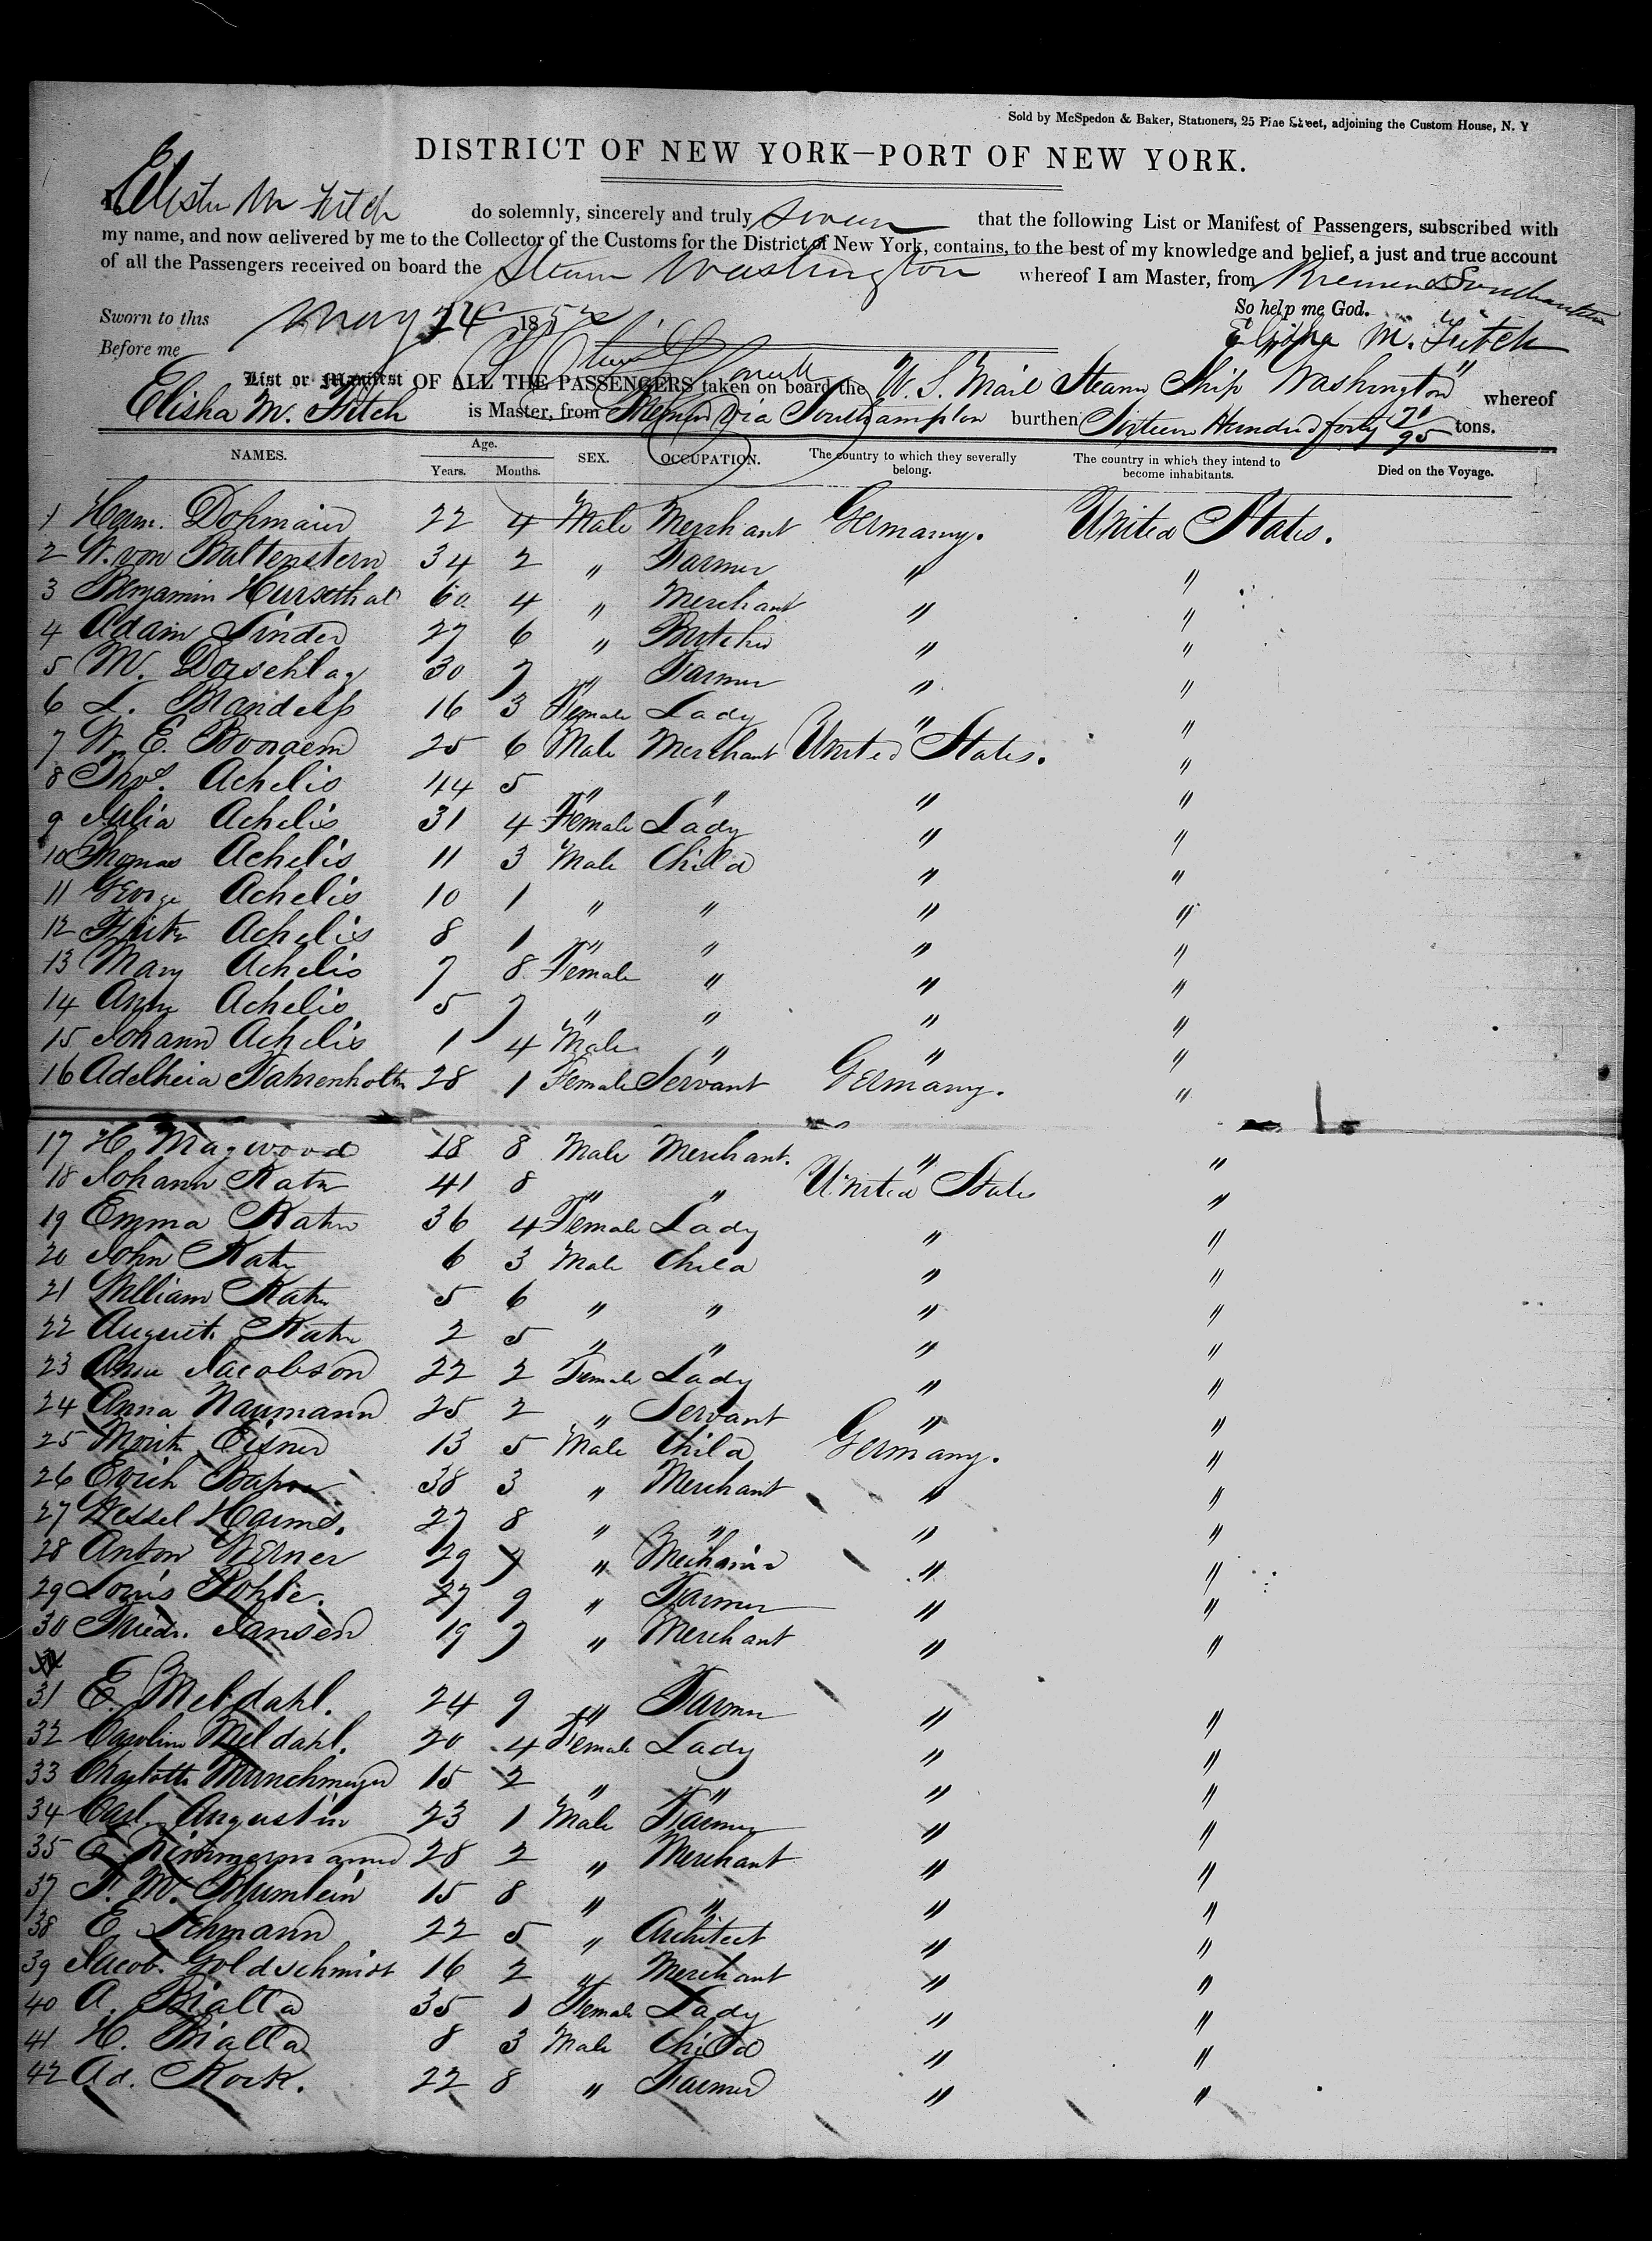 Sold by McSpedon & Baker, Stationers, 25 Pine Street, adjoining the Custom House, N. Y
DISTRICT OF NEW YORK—PORT OF NEW YORK.
I, Elisha M Fitch do solemnly, sincerely and truly swear that the following List or Manifest of Passengers, subscribed with
my name, and now delivered by me to the Collector of the Customs for the District of New York, contains, to the best of my knowledge and belief, a just and true account
of all the Passengers received on board the Steam Washington whereof I am Master, from Bremen & Southampton
So help me God.
Sworn to this May 24 1852
Elisha M. Fitch
Before me
List or Manifest OF ALL THE PASSENGERS taken on board the U. S. Mail Steam Ship "Washington" whereof
Elisha M. Fitch is Master, from Bremen via Southampton burthen Sixteen Hundred forty 71/95 tons.
NAMES. Age. Years. Months. SEX. OCCUPATION. The country to which they severally belong. The country in which they intend to become inhabitants. Died on the Voyage.
1 Herm. Dohmaier 22 4 Male Merchant Germany. United States.
2 W. von Baltenstern 34 2 " Farmer " "
3 Benjamin Hursethal 60 4 " Merchant " "
4 Adam Linder 27 6 " Butcher " "
5 M. Dorschlag 30 7 " Farmer " "
6 L. Mandelss 16 3 Female Lady " "
7 W. E. Bongem 25 6 Male Merchant United States. "
8 Thos. Achelis 44 5 " " " "
9 Julia Achelis 31 4 Female Lady " "
10 Thomas Achelis 11 3 Male Child " "
11 George Achelis 10 1 " " " "
12 Fritz Achelis 8 1 " " " "
13 Mary Achelis 7 8 Female " " "
14 Ann Achelis 5 7 " " " "
15 Johann Achelis 1 4 Male " " "
16 Adelheid Fahrenholtz 28 1 Female Servant Germany. "
17 H. Magwood 18 8 Male Merchant. " "
18 Johann Katz 41 8 " " United States "
19 Emma Katz 36 4 Female Lady " "
20 John Katz 6 3 Male Child " "
21 William Katz 5 6 " " " "
22 August Katz 2 5 " " " "
23 Jacobson 22 2 Female Lady " "
24 Anna Naumann 25 2 " Servant " "
25 Moritz Eisner 13 5 Male Child Germany. "
26 Erich 38 3 " Merchant " "
27 Wessel Harms. 27 8 " " " "
28 Anton Werner 29 7 " Mechanic " "
29 Louis Pohle. 27 9 " Farmer " "
30 Friedr. Jansen 19 7 " Merchant " "
31 E. Meldahl. 24 9 " Farmer " "
32 Caroline Meldahl. 20 4 Female Lady " "
33 Charlotte Munchmeyer 15 2 " " " "
34 Carl Augustin 23 1 Male Farmer " "
35 C. Zimmermann 28 2 " Merchant " "
37 F. W. Blumlein 15 8 " " " "
38 E. Lehmann 22 5 " Architect " "
39 Jacob. Goldschmidt 16 2 " Merchant " "
40 A. Bialla 35 1 Female Lady " "
41 H. Bialla 8 3 Male Child " "
42 Ad. Kock. 22 8 " Farmer " "